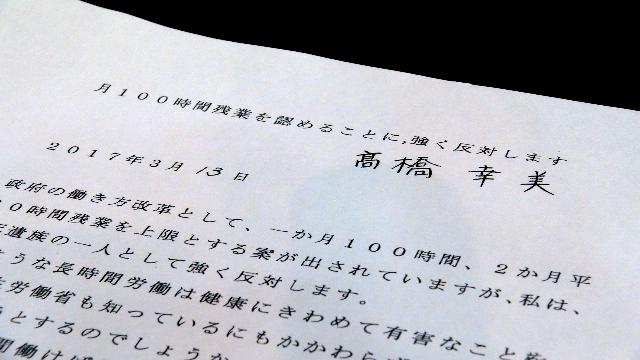 月100時間残業を認めることに,強く反対します
2017年3月13日
髙橋幸美
政府の働き方改革として、一か月100時間、2か月平
0時間残業を上限とする案が出されていますが、私は、
遺族の一人として強く反対します。
うな長時間労働は健康にきわめて有害なこと
労働省も知っているにもかかわらず
とするのでしょうか
働けば